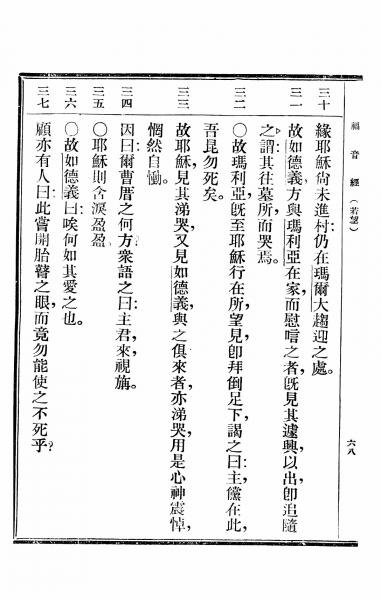 福音經（若望）
六八
三十
緣耶穌尙未進村，仍在瑪爾大趨迎之處。
三一
故如德義方與瑪利亞在家，而慰唁之者，旣見其遽興以出，卽追隨
之，謂其往墓所而哭焉。
三二
○故瑪利亞，旣至耶穌行在所，望見卽拜倒足下，謁之曰：主，儻在此，
吾昆勿死矣。
三三
故耶穌，見其涕哭，又見如德義與之俱來者亦涕哭，用是心神震悼，
惻然自慟。
三四
因曰：爾曹厝之何方，衆語之曰：主君，來視旃。
三五
○耶穌則含淚盈盈。
三六
○故如德義曰：唉何如其愛之也。
三七
顧亦有人曰：此嘗開胎瞽之眼，而竟勿能使之不死乎？